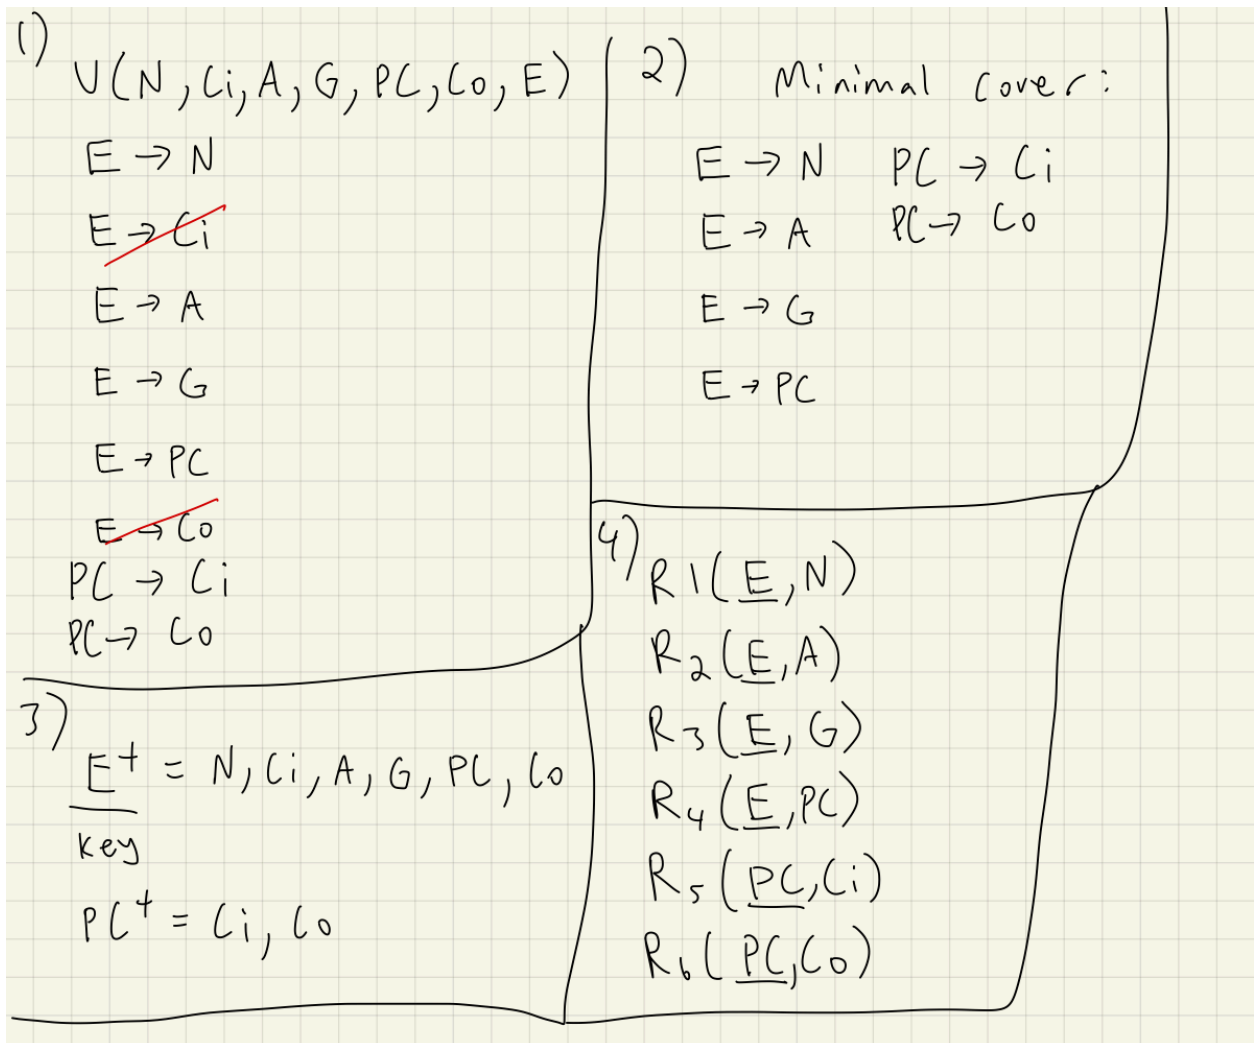 1)
U(N, Ci, A, G, PC, Co, E)
E → N
E → Ci
E → A
E → G
E → PC
E → Co
PC → Ci
PC → Co
2) Minimal cover:
E → N PC → Ci
E → A PC → Co
E → G
E → PC
3)
E+ = N, Ci, A, G, PC, Co
key
PC+ = Ci, Co
4)
R1(E, N)
R2(E, A)
R3(E, G)
R4(E, PC)
R5(PC, Ci)
R6(PC, Co)